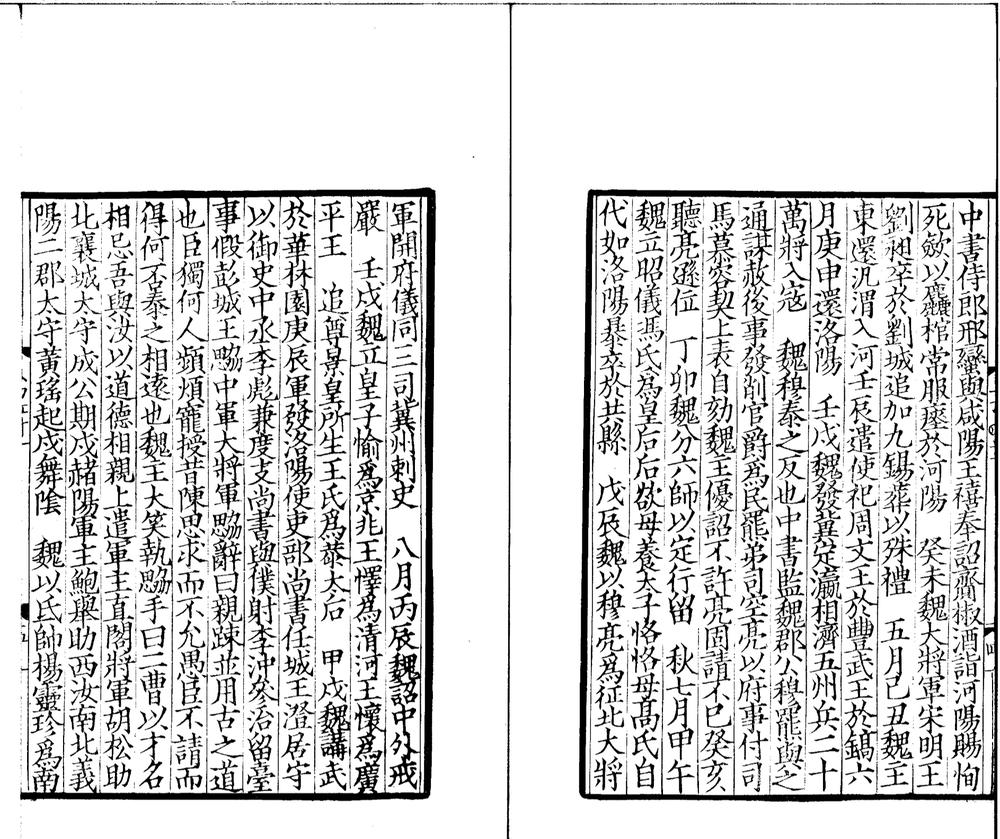 中書侍郎邢巒與咸陽王禧奉詔齎椒酒詣河陽賜恂
死斂以麤棺常服瘞於河陽　癸未魏大將軍宋明王
劉昶卒於彭城追加九錫葬以殊禮　五月己丑魏主
東還汎渭入河壬辰遣使祀周文王於豐武王於鎬六
月庚申還洛陽　壬戌魏發冀定瀛相濟五州兵二十
萬將入寇　魏穆泰之反也中書監魏郡公穆羆與之
通謀赦後事發削官爵爲民羆弟司空亮以府事付司
馬慕容契上表自劾魏主優詔不許亮固請不已癸亥
聽亮遜位　丁卯魏分六師以定行留　秋七月甲午
魏立昭儀馮氏爲皇后后欲母養太子恪恪母髙氏自
代如洛陽暴卒於共縣　戊辰魏以穆亮爲征北大將
軍開府儀同三司冀州刺史　八月丙辰魏詔中外戒
嚴　壬戌魏立皇子愉爲京兆王懌爲清河王懷爲廣
平王　追尊景皇所生王氏爲恭太后　甲戌魏講武
於華林園庚辰軍發洛陽使吏部尚書任城王澄居守
以御史中丞李彪兼度支尚書與僕射李沖參治留臺
事假彭城王勰中軍大將軍勰辭曰親踈並用古之道
也臣獨何人頻煩寵授昔陳思求而不允愚臣不請而
得何否泰之相遠也魏主大笑執勰手曰二曹以才名
相忌吾與汝以道德相親上遣軍主直閣將軍胡松助
北襄城太守成公期戍赭陽軍主鮑舉助西汝南北義
陽二郡太守黃瑤起戍舞陰　魏以氐帥楊靈珍爲南